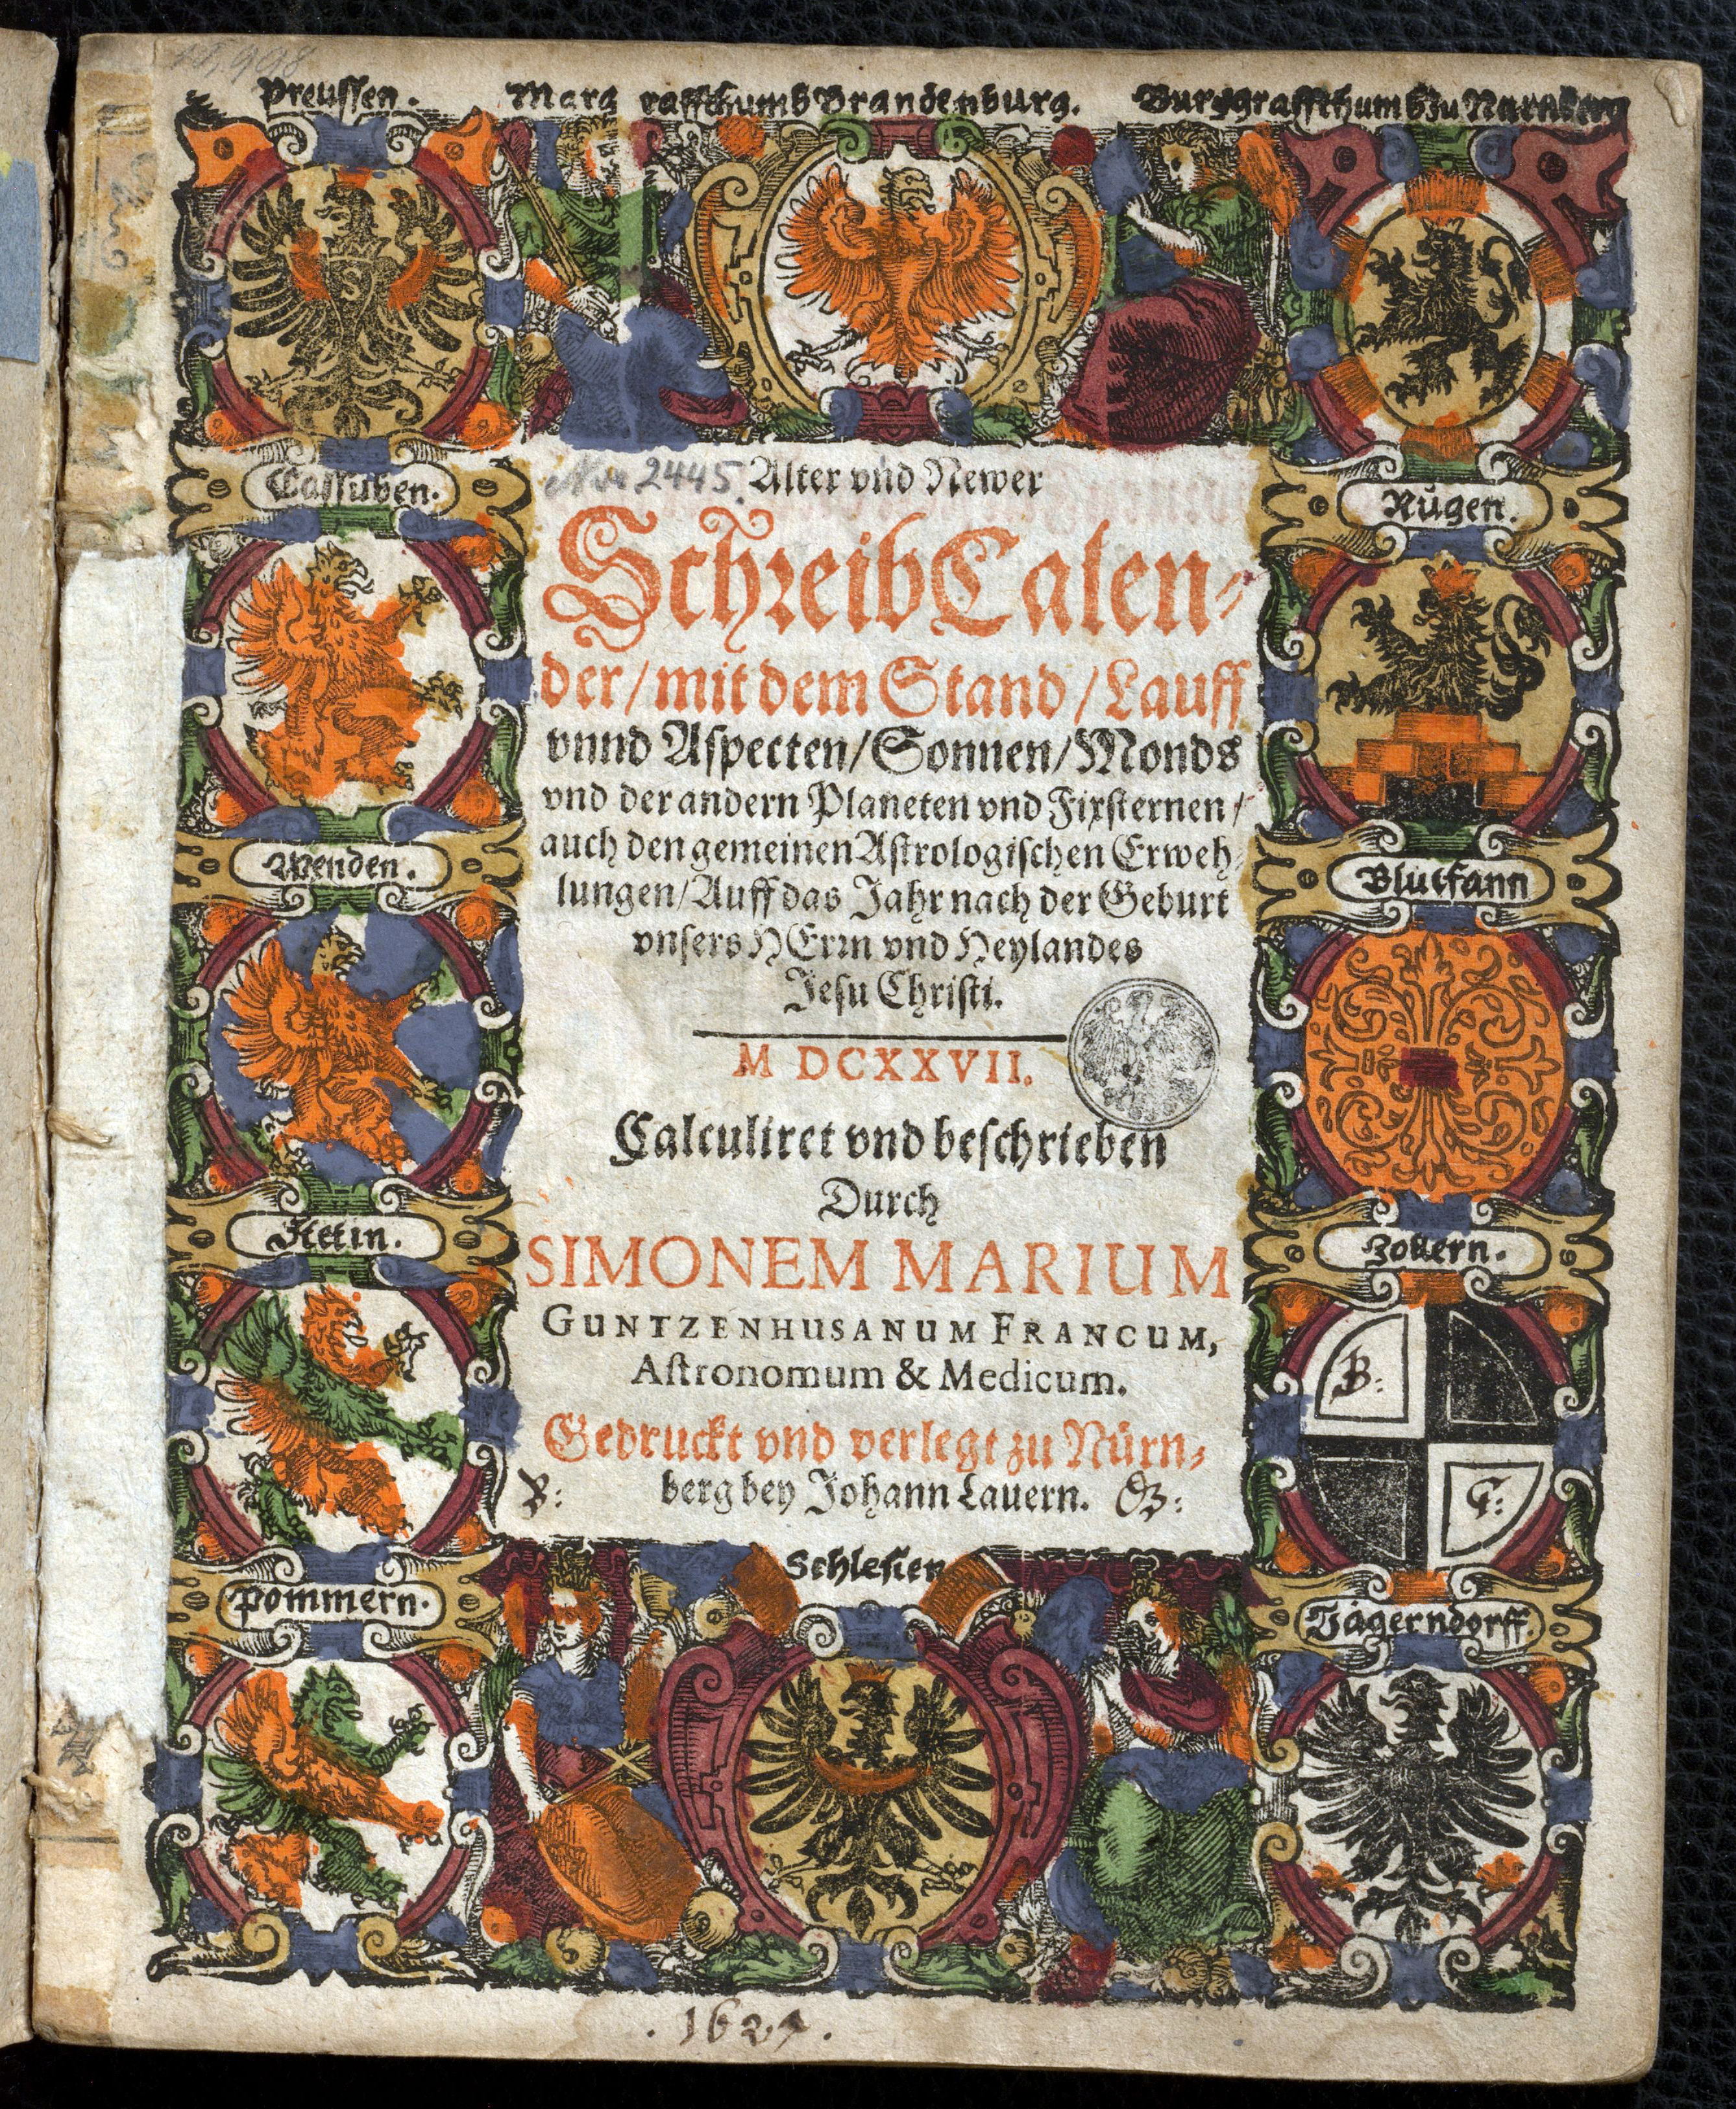 Preussen. Marg raffthumb Brandenburg. Burggraffthumb zu Nürnberg
Nr. 2445. Alter vnd Newer
SchreibCalen⸗
der/mit dem Stand/Lauff
vnnd Aſpecten/Sonnen/Monds
vnd der andern Planeten vnd Fixſternen/
auch den gemeinen Aſtrologiſchen Erweh⸗
lungen/Auff das Jahr nach der Geburt
vnſers HErꝛn vnd Heylandes
Jeſu Chriſti.
M DCXXVII.
Calculiret vnd beſchrieben
Durch
SIMONEM MARIUM
GUNTZENHUSANUM FRANCUM,
Aſtronomum & Medicum.
Gedruckt vnd verlegt zu Nürn⸗
berg bey Johann Lauern.
Cassuben.
Wenden.
Stetin.
Pommern.
Rügen.
Blutfann
Zollern.
B:
G:
Jägerndorff.
Schlesien
. 1627 .